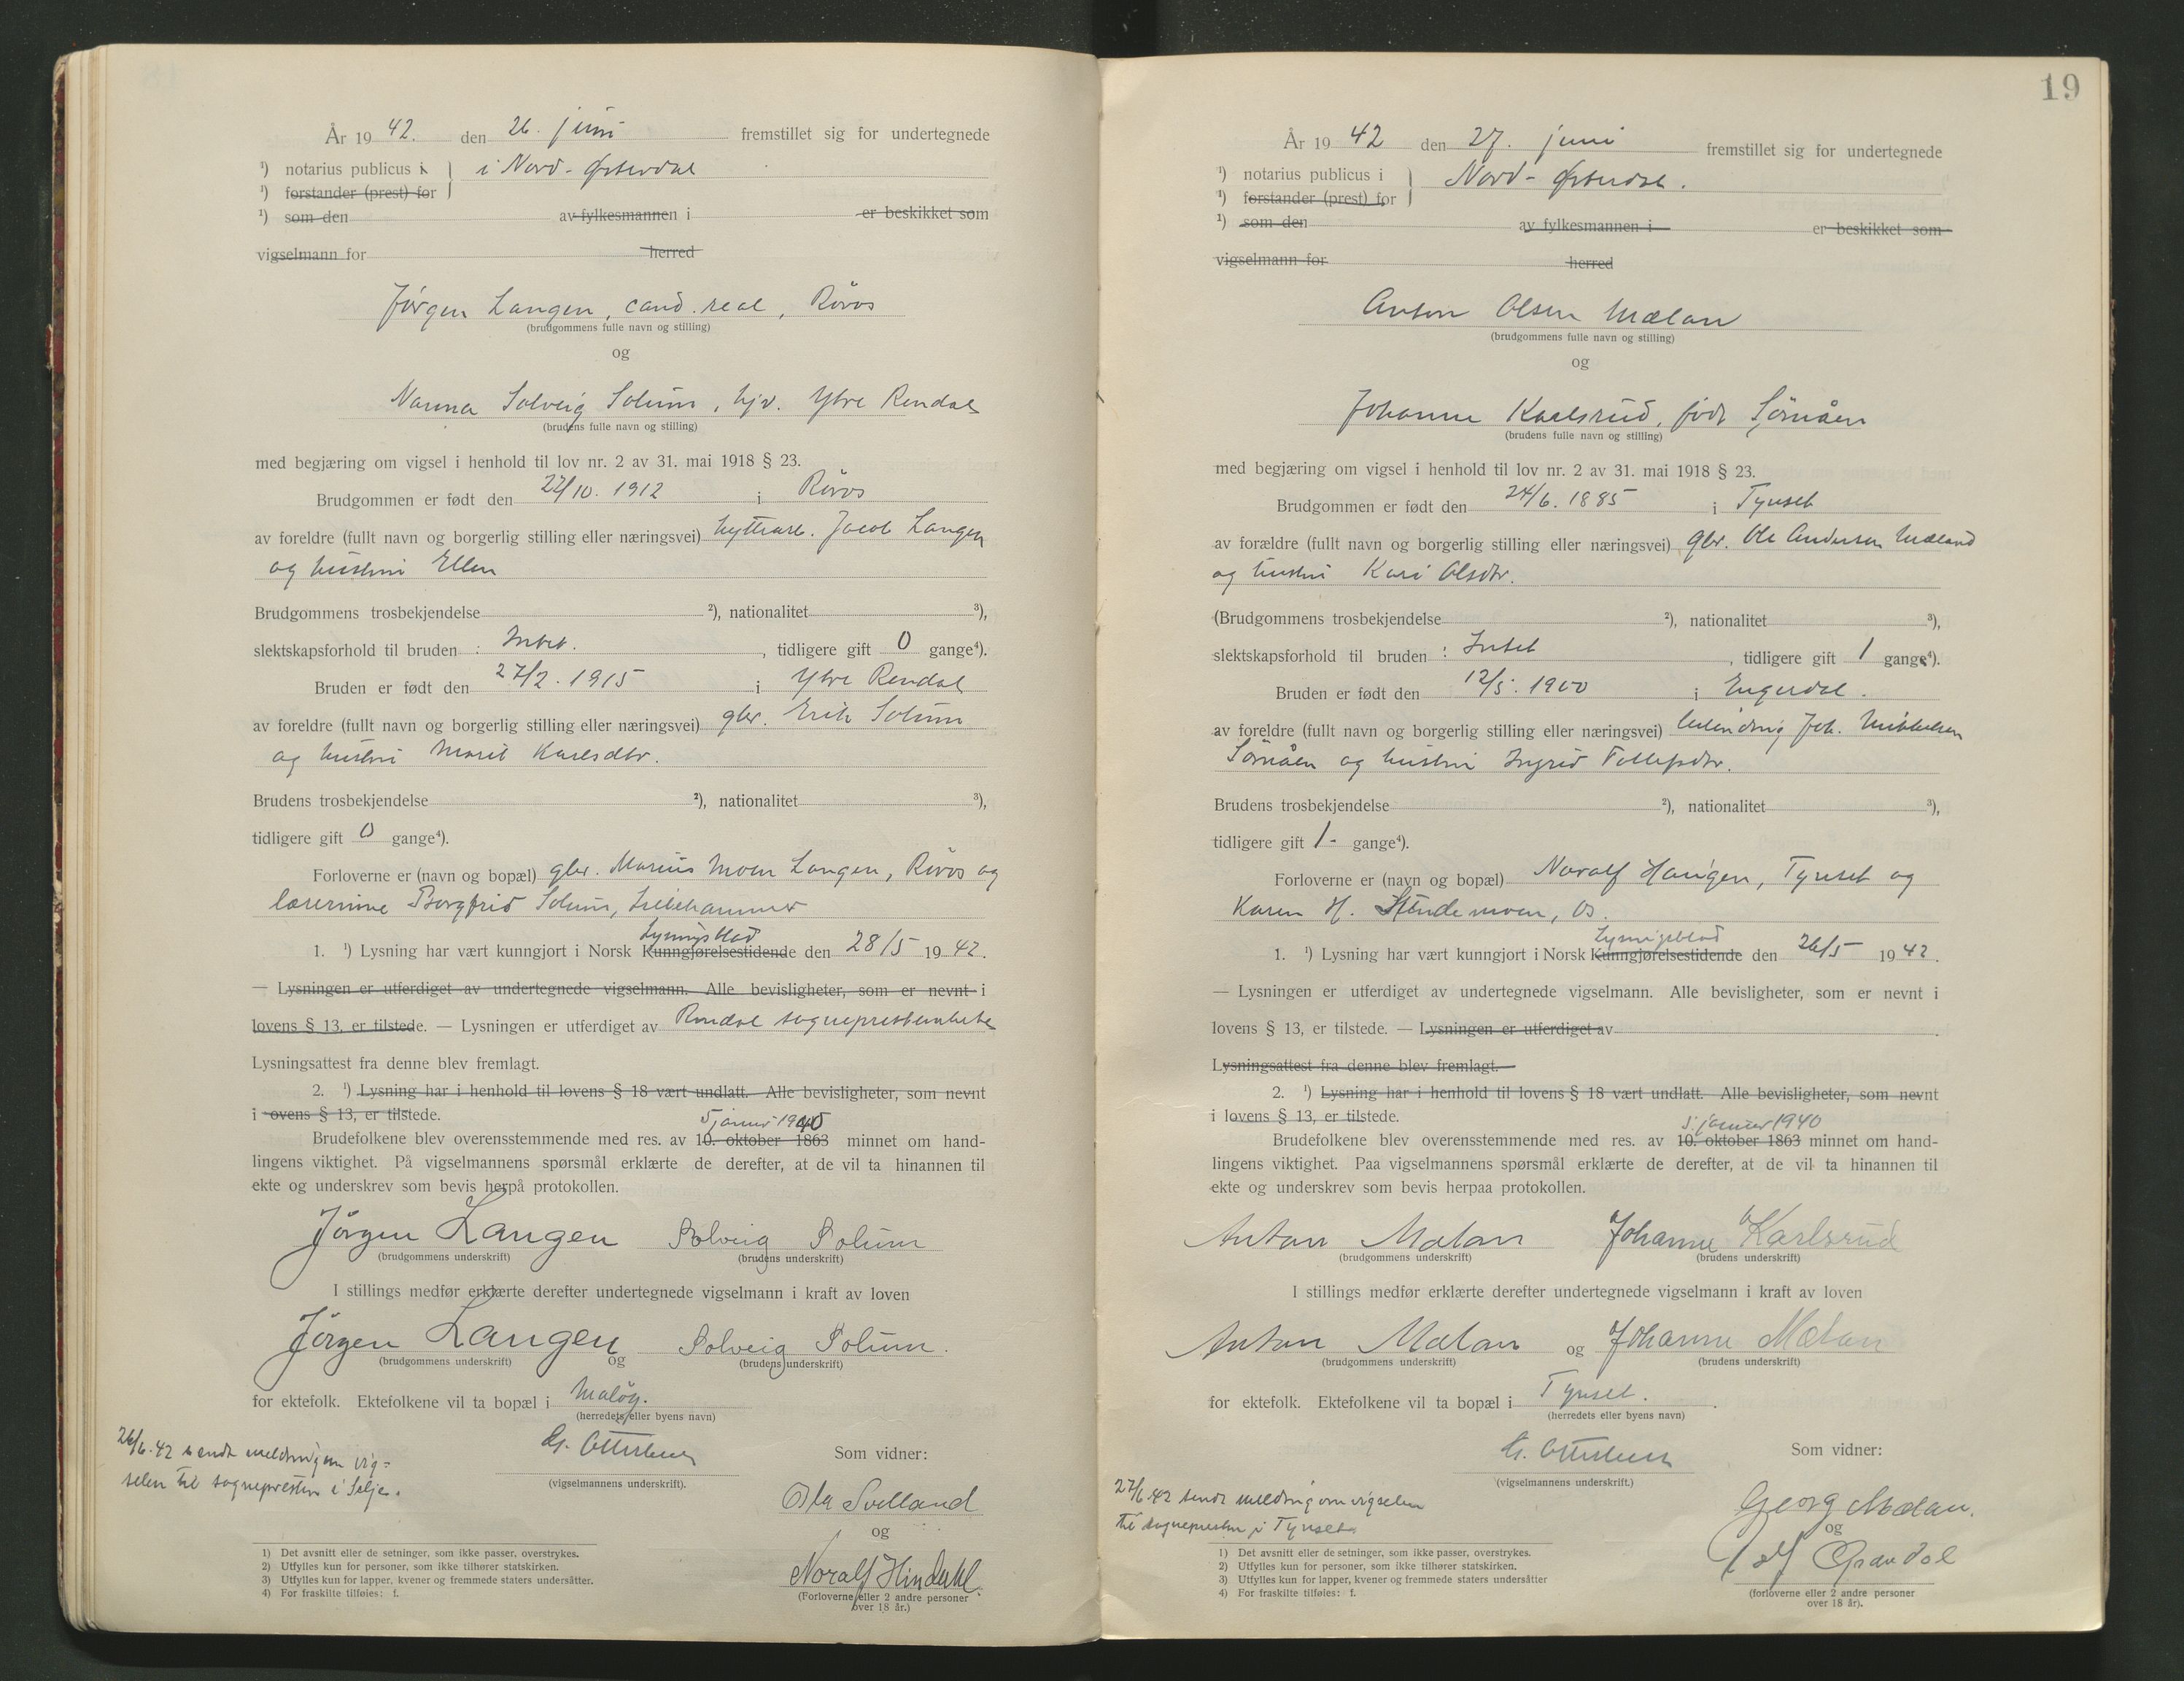 År 19 42. den 26. juni fremstillet sig for undertegnede
¹) notarius publicus i } i Nord-Østerdal
¹) forstander (prest) for
¹) som den av fylkesmannen i er beskikket som
vigselmann for herred
Jørgen Langen, cand. real, Röros
(brudgommens fulle navn og stilling)
og
Nanna Solveig Solum, hjv. Ytre Rendal
(brudens fulle navn og stilling)
med begjæring om vigsel i henhold til lov nr. 2 av 31. mai 1918 § 23.
Brudgommen er født den 22/10. 1912 i Röros
av foreldre (fullt navn og borgerlig stilling eller næringsvei) hyttearb. Jacob Langen
og hustru Ellen
Brudgommens trosbekjendelse ²), nationalitet ³),
slektskapsforhold til bruden : Intet. , tidligere gift 0 gange⁴).
Bruden er født den 27/2. 1915 i Ytre Rendal
av foreldre (fullt navn og borgerlig stilling eller næringsvei) gbr. Erik Solum
og hustru Marit Karlsdtr.
Brudens trosbekjendelse ²), nationalitet ³),
tidligere gift 0 gange⁴).
Forloverne er (navn og bopæl) gbr. Marius Moen Langen, Röros og
lærerinne Borgfrid Solum, Lillehammer
Lysningsblad
1. ¹) Lysning har vært kunngjort i Norsk Kunngjørelsestidende den 28/5 19 42.
— Lysningen er utferdiget av undertegnede vigselmann. Alle bevisligheter, som er nevnt i
lovens § 13, er tilstede. — Lysningen er utferdiget av Rendal sogneprestembete
Lysningsattest fra denne blev fremlagt.
2. ¹) Lysning har i henhold til lovens § 18 vært undlatt. Alle bevisligheter, som nevnt
i lovens § 13, er tilstede.
5 januar 1940
Brudefolkene blev overensstemmende med res. av 10. oktober 1863 minnet om hand-
lingens viktighet. På vigselmannens spørsmål erklærte de derefter, at de vil ta hinannen til
ekte og underskrev som bevis herpå protokollen.
Jörgen Langen Solveig Solum
(brudgommens underskrift) (brudens underskrift)
I stillings medfør erklærte derefter undertegnede vigselmann i kraft av loven
Jörgen Langen og Solveig Solum.
(brudgommens underskrift) (brudens underskrift)
for ektefolk. Ektefolkene vil ta bopæl i Maløy.
(herredets eller byens navn)
26/6.42 sendt melding om vig-
selen til sognepresten i Selje.
(vigselmannens underskrift).
Som vidner:
Ola Svelland
og
Noralf Hindahl.
(Forloverne eller 2 andre personer
over 18 år.)
1) Det avsnitt eller de setninger, som ikke passer, overstrykes.
2) Utfylles kun for personer, som ikke tilhører statskirken.
3) Utfylles kun for lapper, kvener og fremmede staters undersåtter.
4) For fraskilte tilføies: f.
19
År 19 42 den 27. juni fremstillet sig for undertegnede
¹) notarius publicus i } Nord-Østerdal.
¹) forstander (prest) for
¹) som den av fylkesmannen i er beskikket som
vigselmann for herred
Anton Olsen Mælan
(brudgommens fulle navn og stilling)
og
Johanne Karlsrud, født Sömåen
(brudens fulle navn og stilling)
med begjæring om vigsel i henhold til lov nr. 2 av 31. mai 1918 § 23.
Brudgommen er født den 24/6. 1885 i Tynset
av forældre (fullt navn og borgerlig stilling eller næringsvei) gbr. Ole Andersen Mæland
og hustru Kari Olsdtr.
(Brudgommens trosbekjendelse ²), nationalitet ³),
slektskapsforhold til bruden : Intet , tidligere gift 1 gange⁴).
Bruden er født den 12/5. 1900 i Engerdal.
av foreldre (fullt navn og borgerlig stilling eller næringsvei) Joh. Mikkelsen
Sömåen og hustru Ingrid Tollefsdtr.
Brudens trosbekjendelse ²), nationalitet ³),
tidligere gift 1- gange⁴).
Forloverne er (navn og bopæl) Noralf Haugen, Tynset og
Karen H. Stendemoen, Os.
Lysningsblad
1. ¹) Lysning har vært kunngjort i Norsk Kunngjørelsestidende den 26/5 19 42.
— Lysningen er utferdiget av undertegnede vigselmann. Alle bevisligheter, som er nevnt i
lovens § 13, er tilstede. — Lysningen er utferdiget av
Lysningsattest fra denne blev fremlagt.
2. ¹) Lysning har i henhold til lovens § 18 vært undlatt. Alle bevisligheter, som nevnt
i lovens § 13, er tilstede.
5. januar 1940
Brudefolkene blev overensstemmende med res. av 10. oktober 1863 minnet om hand-
lingens viktighet. Paa vigselmannens spørsmål erklærte de derefter, at de vil ta hinannen til
ekte og underskrev som bevis herpaa protokollen.
Anton Mælan Johanne Karlsrud
(brudgommens underskrift) (brudens underskrift)
I stillings medfør erklærte derefter undertegnede vigselmann i kraft av loven
Anton Mælan og Johanne Mælan
(brudgommens underskrift) (brudens underskrift)
for ektefolk. Ektefolkene vil ta bopæl i Tynset.
(herredets eller byens navn)
27/6 42 sendt melding om vigselen
til sognepresten i Tynset.
(vigselmannens underskrift.)
Som vidner:
Georg Mælan.
og
Opandal
(forloverne eller 2 andre personer
over 18 år).
1) Det avsnitt eller de setninger, som ikke passer, overstrykes.
2) Utfylles kun for personer, som ikke tilhører statskirken.
3) Utfylles kun for lapper, kvener og fremmede staters undersåtter
4) For fraskilte tilføies: f.